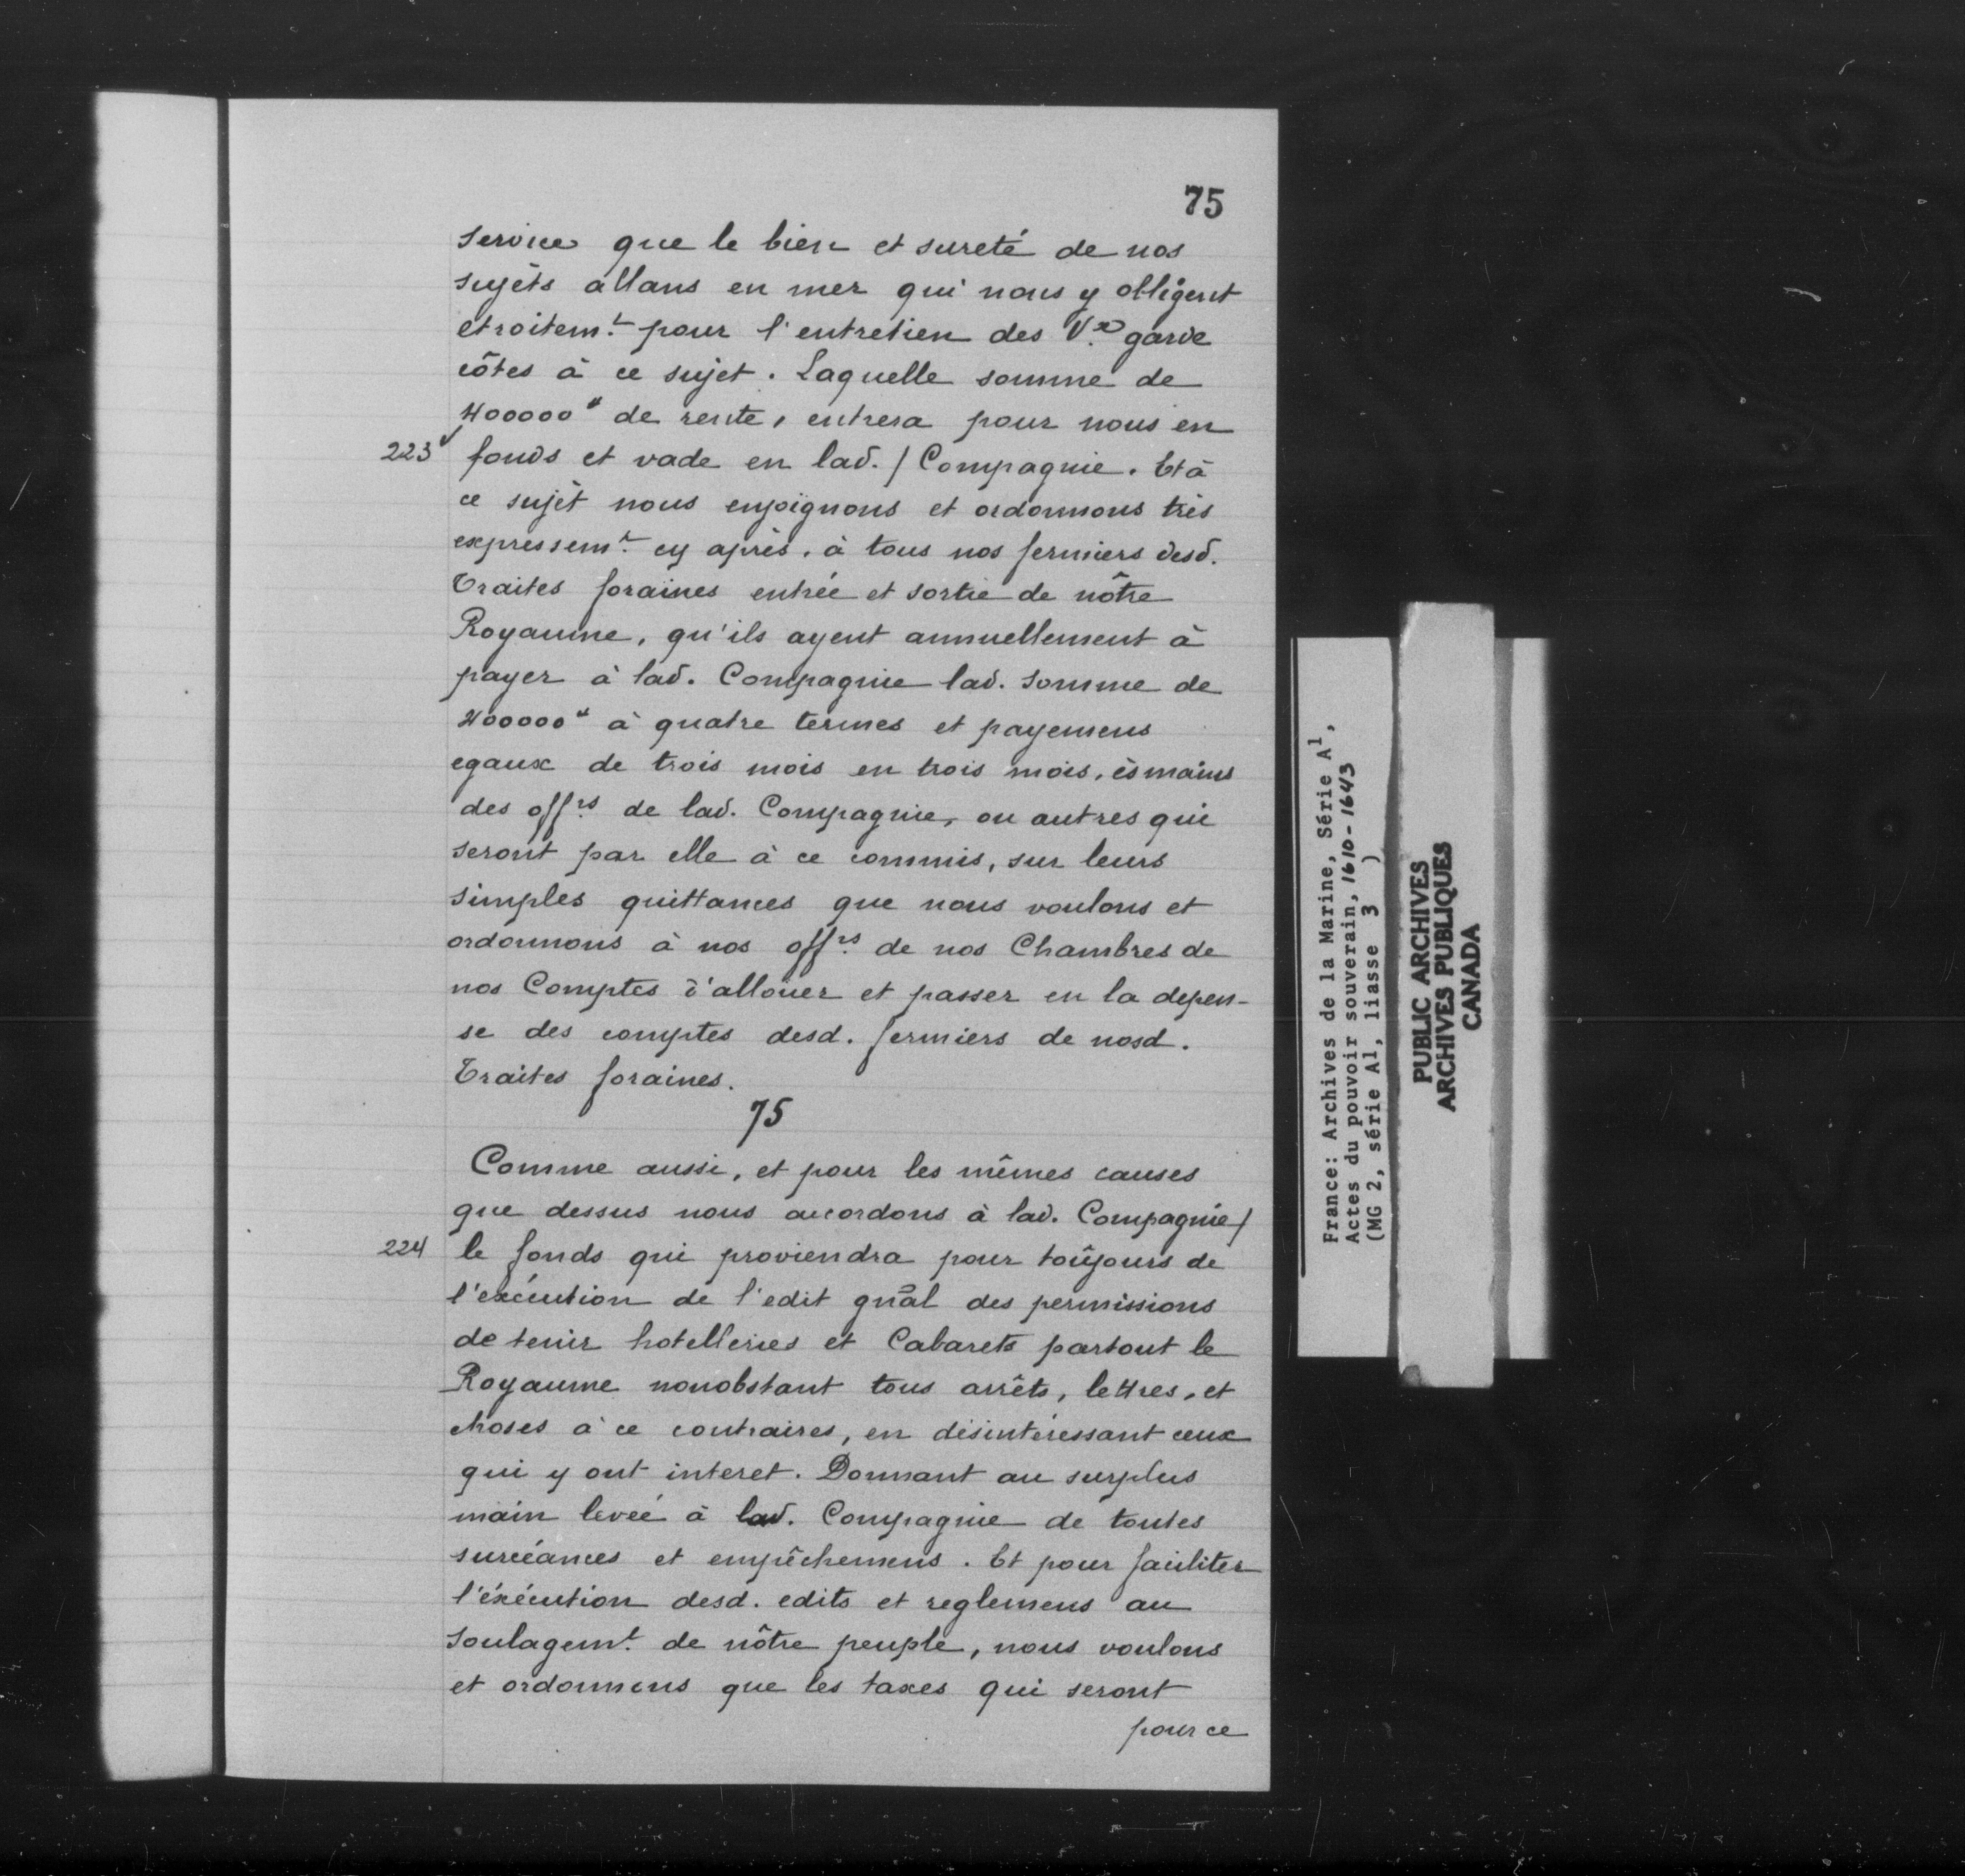 75
service que le bien et sureté de nos
sujèts allans en mer qui nous y obligent
etroitem.t pour l'entretien des V.x garde
côtes à ce sujet. Laquelle somme de
400000# de rente, entrera pour nous en
223v fonds et vade en lad. / Compagnie. Et à
ce sujèt nous enjoignons et ordonnons très
expressem.t cy après, à tous nos fermiers desd.
Traites foraines entrée et sortie de nôtre
Royaume, qu'ils ayent annuellement à
payer à lad. Compagnie lad. somme de
400000# à quatre termes et payemens
egaux de trois mois en trois mois, ès mains
des off.rs de lad. Compagnie, ou autres qui
seront par elle à ce commis, sur leurs
simples quittances que nous voulons et
ordonnons à nos off.rs de nos Chambres de
nos Comptes d'alloüer et passer en la depen-
se des comptes desd. fermiers de nosd.
Traites foraines.
75
Comme aussi, et pour les mêmes causes
que dessus nous accordons à lad. Compagnie /
224 le fonds qui proviendra pour toûjours de
l'exécution de l'edit gnāl des permissions
de tenir hotelleries et Cabarets partout le
Royaume nonobstant tous arrêts, lettres, et
choses à ce contraires, en désintéressant ceux
qui y ont interet. Donnant au surplus
main levée à lad. Compagnie de toutes
surcéances et empêchemens. Et pour faciliter
l'éxécution desd. edits et reglemens au
soulagem.t de nôtre peuple, nous voulons
et ordonnons que les taxes qui seront
pour ce
France: Archives de la Marine, Série A1,
Actes du pouvoir souverain, 1610-1643
(MG 2, série A1, liasse 3 )
PUBLIC ARCHIVES
ARCHIVES PUBLIQUES
CANADA